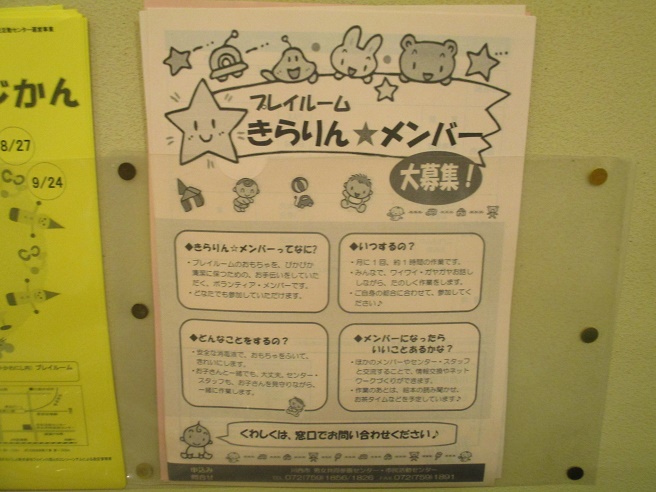 じかん
8/27
9/24
プレイルーム
プレイルーム
きらりん★メンバー
大募集！
◆きらりん☆メンバーってなに？
・プレイルームのおもちゃを、ぴかぴか
清潔に保つための、お手伝いをしていた
だく、ボランティア・メンバーです。
・どなたでも参加していただけます。
◆いつするの？
・月に1回、約1時間の作業です。
・みんなで、ワイワイ・ガヤガヤお話し
しながら、たのしく作業をします。
・ご自身の都合に合わせて、参加してく
ださい♪
◆どんなことをするの？
・安全な消毒液で、おもちゃをふいて、
きれいにします。
・お子さんと一緒でも、大丈夫。センター・
スタッフも、お子さんを見守りながら、
一緒に作業します。
◆メンバーになったら
いいことあるかな？
・ほかのメンバーやセンター・スタッフ
と交流することで、情報交換やネット
ワークづくりができます。
・作業のあとは、絵本の読み聞かせ、
お茶タイムなどを予定しています♪
くわしくは、窓口でお問い合わせください♪
申込み
問合せ
川西市 男女共同参画センター・市民活動センター
TEL 072(759)1856/1826 FAX 072(759)1891